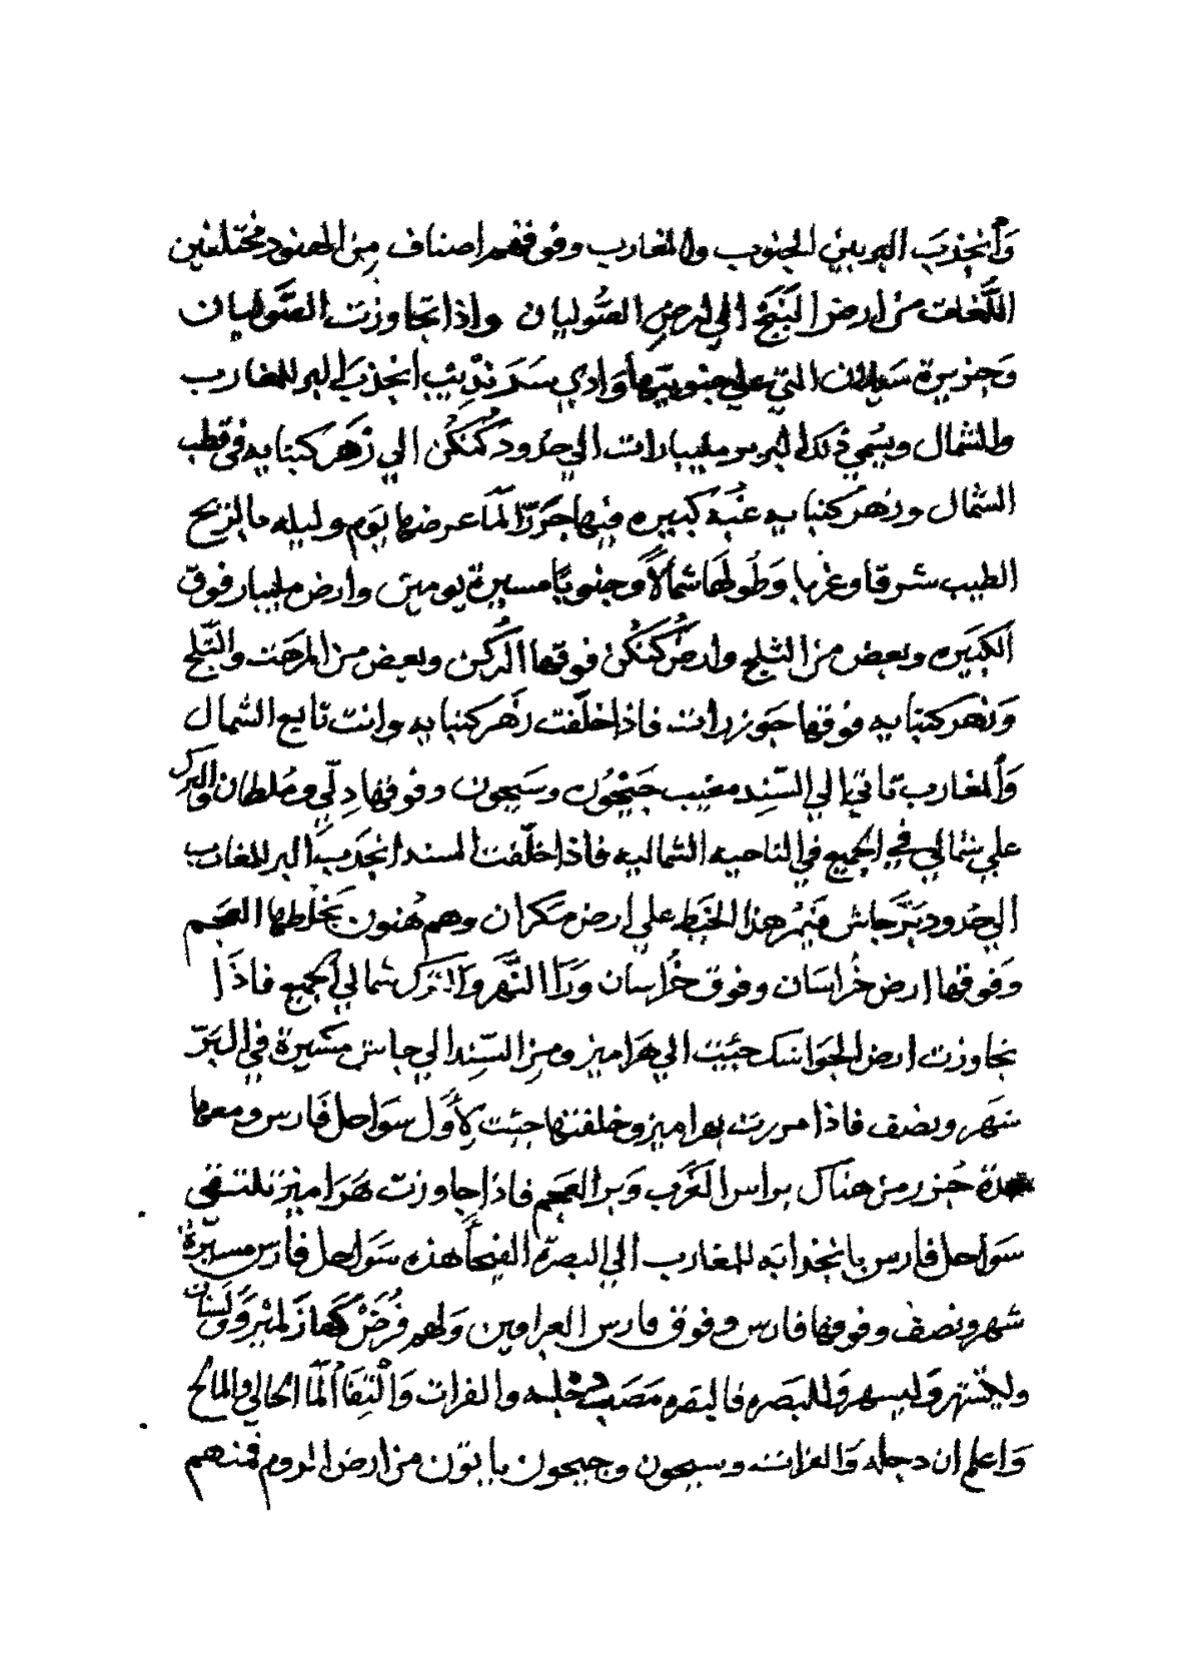 وَٱنجذبَ البر بين الجنوب والمغارب وفوقهم اصناف مِن الهنود مختلفين
اللُّغات من ارض البَنْج الي ارض الصُّوليان واذا تجاوزت الصُّوليان
وَجزيرة سَيلان التي علي جنوبيّها وَادي سَرَنْدِيب انجذبَ البر للمغارب
والشمال ويسُمي ذلك البر بر مليبارات الي حدُود كُنْكَن الي زَهَر كنبايه في قطب
الشمال وزهَر كنبايه غُبَّه كَبيره فيها جَرَرّ المآ عرضها يَوم وليله بالريح
الطيب شرقا وغربا وَطُولَها شمالاً وجنوبيًا مسيرة يومين وارض مليبار فوق
الكَبيَره وبعض من التلج وارض كُنْكَن فوقها الدُّكن وبعض من المرهت والتّلج
وَزهَر كنبايه فوقها جَوزرات فاذا خلّفت زهَر كنبايه وانت تابع الشمال
وَالمغارب تاتي الي السِّند مغيب جَيْحُون وسَيحون وفوقها دِلّي ومُلطان والترك
علي شمالي الجميع في الناحيه الشماليه فاذا خلّفت السند انجذب البر للمغارب
الي حُدود بَرّ جاش فيَمُر هذا الخَط علي ارض مَكران وهم هُنون يخلطها العجم
وَفوقها ارض خُراسَان وفوق خُراسان وَرَآ النَّهر وَالترك شمالي الجميع فاذَا
تجاوزت ارض الجَواسك جئيت الي هَراميز ومِن السِّند الي جاش مَسَيرة في البَرّ
شهَر ونصف فاذا مررت بهراميز وخلفتها جئت لأَوّل سَواحل فَارس ومعها
عدة جُزر من هناك براس العَرَب وَبر العجم فاذا جاوزت هَرَاميز تلتقي
سَواحل فارس بانجذابَه للمغارب الي البصرَه الفيحاَ هذه سَواحل فاَرس مسيَرة
شهر ونصف وفوقها فارس وفوق فارس العراقين وَلهم فُرَضٌ كهازَ لمُيْر
وليَشتهر وَليسهر وَللبَصره فالبَصره مَصَب دجله والفرات وَالْتِقَآ المآ الحالي والمالح
وَاعلم ان دجله وَالفرات وسيحون وجيحون ياتون من ارض الروم فمنهم